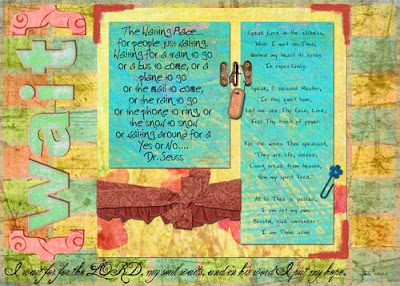 wait
The Waiting Place...
for people just waiting.
Waiting for a train to go
or a bus to come, or a
plane to go
or the mail to come,
or the rain to go
or the phone to ring, or
the snow to snow
or waiting around for a
Yes or No.....
Dr. Seuss
Speak Lord in the stillness,
While I wait on Thee,
Hushed my heart to listen
In expectancy.
Speak, O blessed Master,
In this quiet hour,
Let me see Thy face, Lord,
Feel Thy touch of power.
For the words Thou speakest,
They are life, indeed,
Living bread from heaven,
Now my spirit feed.
All to Thee is yielded,
I am not my own
Blissful, glad surrender
I am Thine alone
I wait for the LORD, my soul waits, and in his word I put my hope.